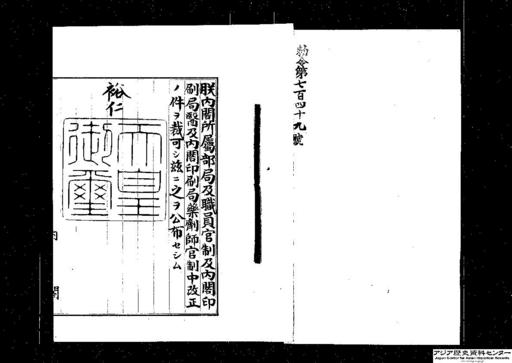 勅令第七百四十九號
朕內閣所屬部局及職員官制及內閣印
刷局醫及內閣印刷局藥劑師官制中改正
ノ件ヲ裁可シ茲ニ之ヲ公布セシム
裕仁
天皇
御璽
內閣
アジア歴史資料センター
Japan Center for Asian Historical Records